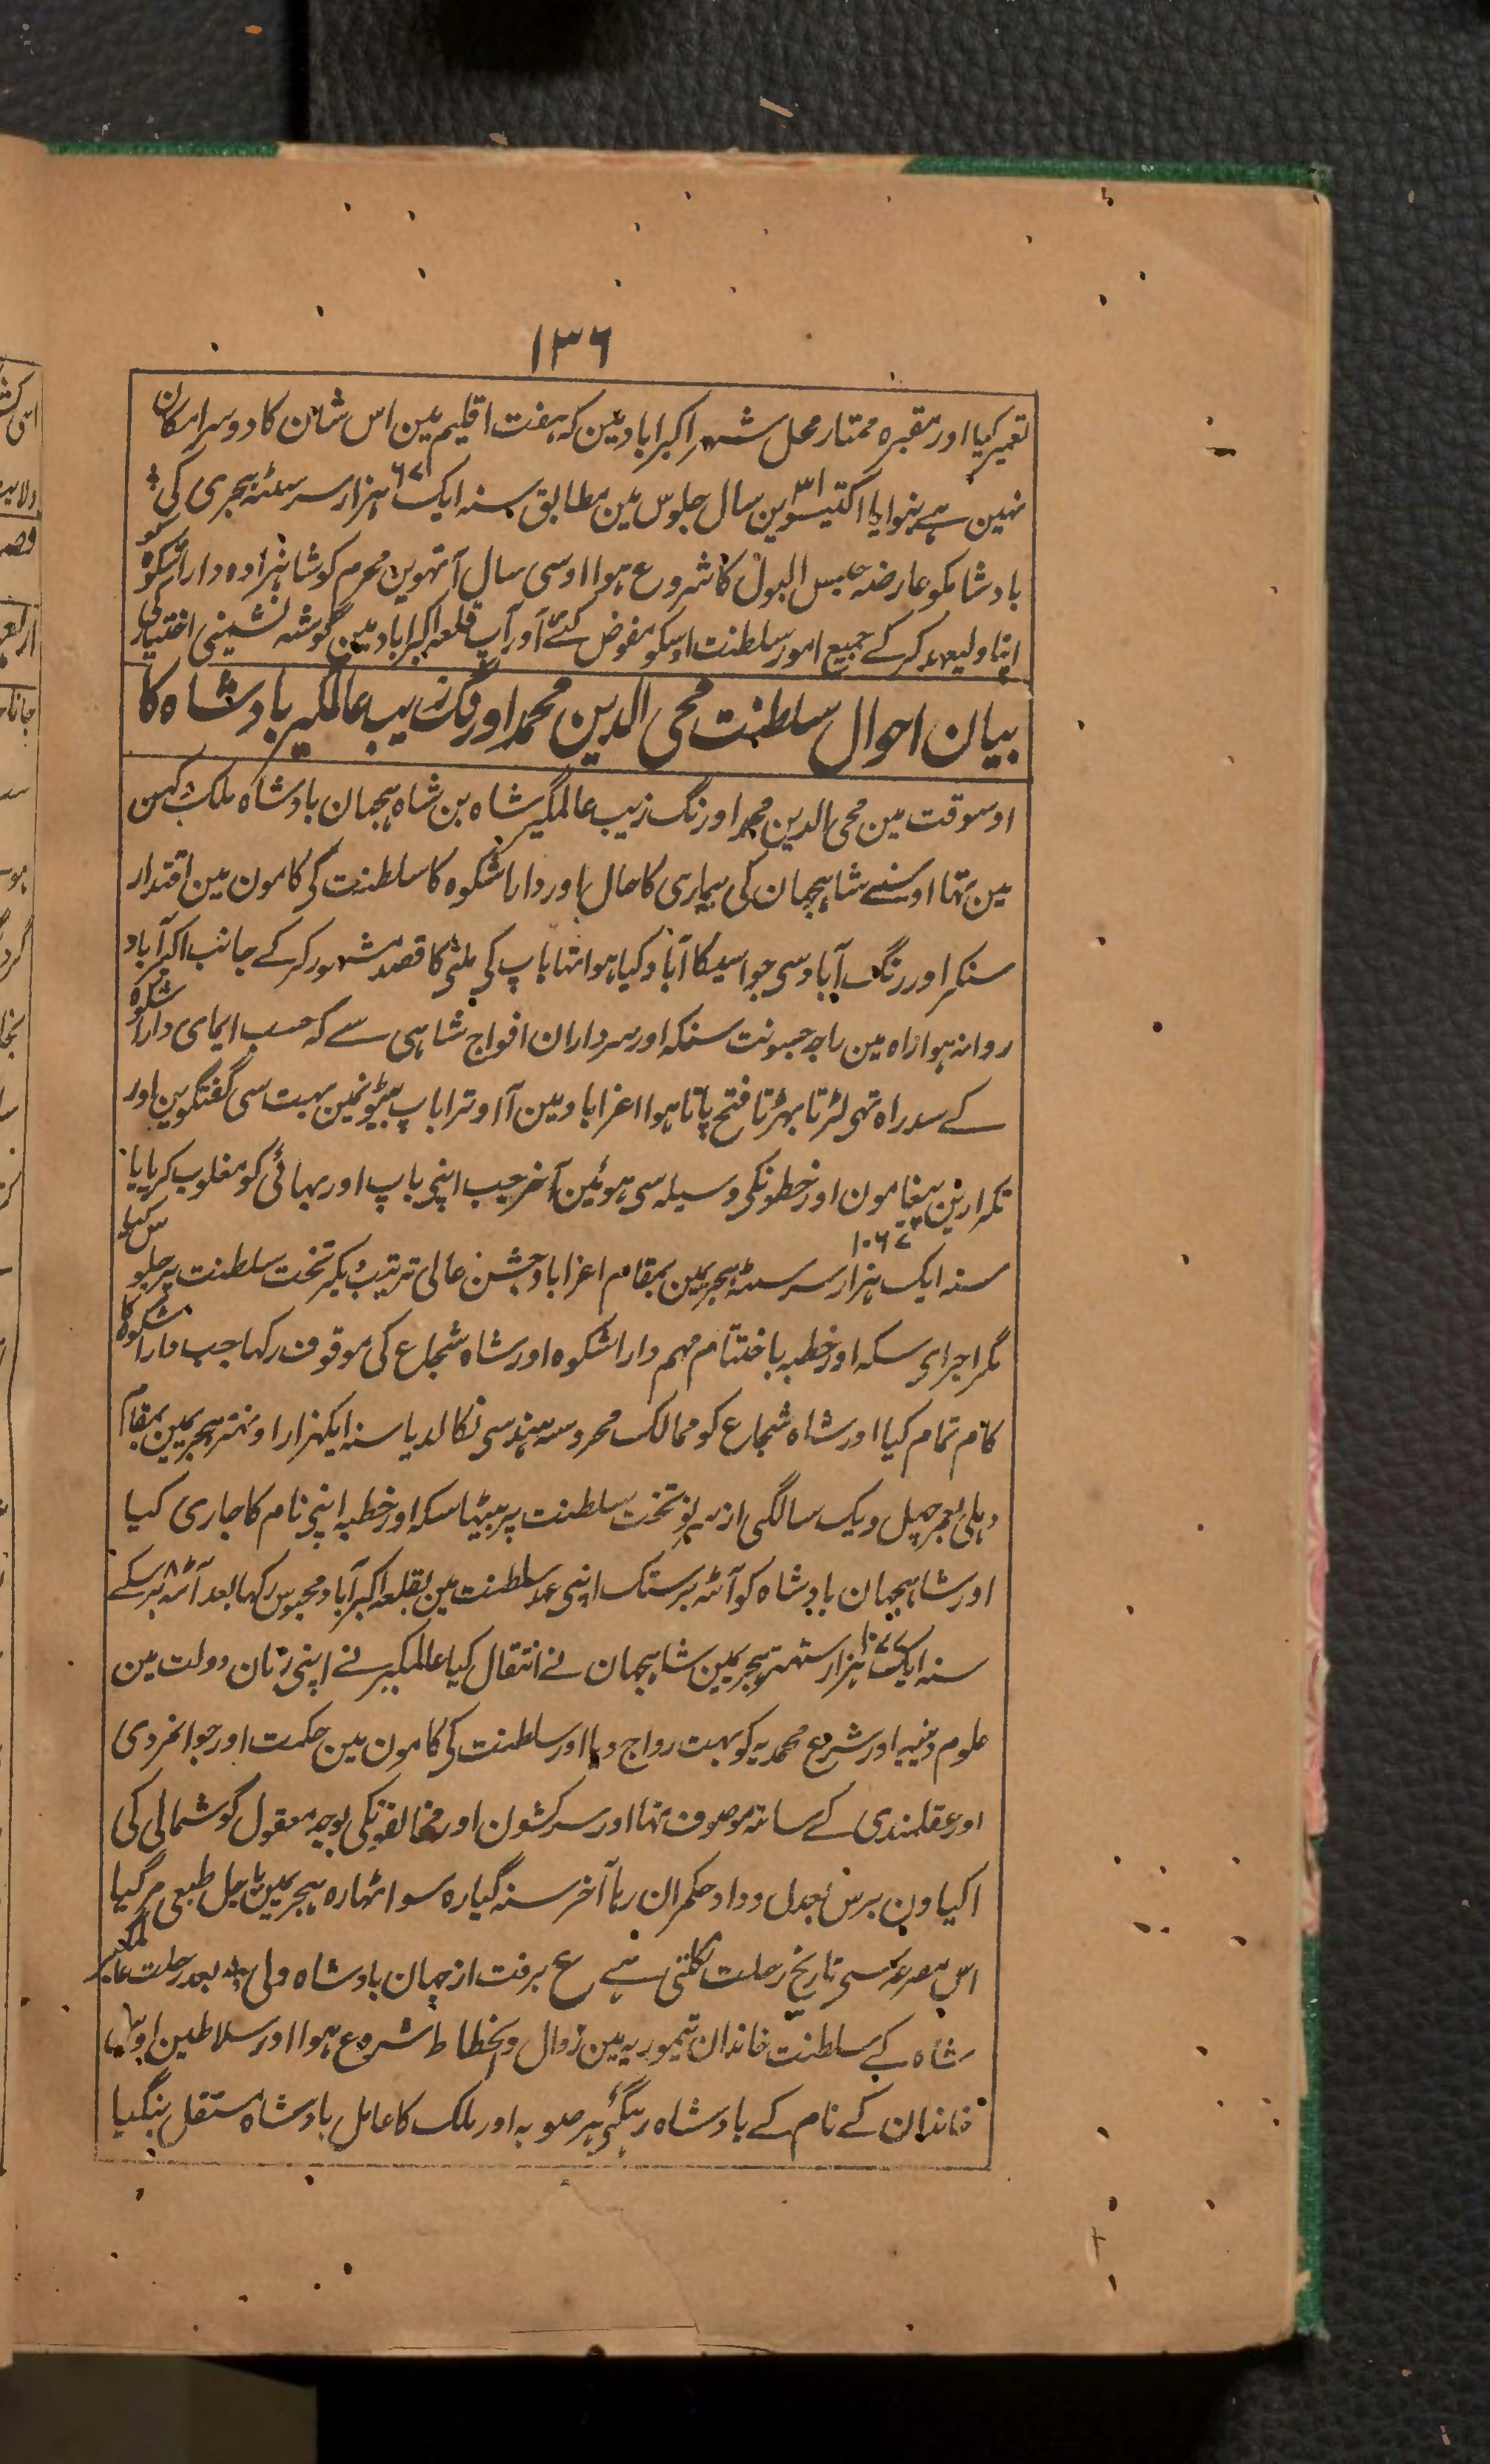 ۱۳۶
تعمیر کیا اور مقبرہ ممتاز محل شہر اکبراباد مین کہ ہفت اقلیم مین اس شان کا دوسرا مکان
نہین ہے بنوایا اکتیسوین ۳۱ سال جلوس مین مطابق سنہ ایک ہزار سرسٹہ ہجری کی
بادشاہکو عارضہ حبس البول کا شروع ہوا اوسی سال آتہوین محرم کو شاہزادہ داراشکوہ کو
اپنا ولیعہد کر کے جمیع امور سلطنت اوسکو مفوض کئے اور آپ قلعہ اکبراباد مین گوشہ نشینی اختیار کی
بیان احوال سلطنت محی الدین محمد اورنگ زیب عالمگیر بادشاہ کا
اوسوقت مین محی الدین محمد اورنگ زیب عالمگیر شاہ بن شاہجہان بادشاہ ملک دکہن
مین تہا اوسنے شاہجہان کی بیماری کا حال اور داراشکوہ کا سلطنت کی کامون مین اقتدار
سنکر اورنگ آباد سی جو اسیکا آباد کیا ہوا تہا باپ کی ملنی کا قصد مشہور کر کے جانب اکبرآباد
روانہ ہوا راہ مین راجہ جسونت سنگہ اور سرداران افواج شاہی سے کہ حسب ایمای داراشکوہ
کے سدراہ تہی لڑتا بہڑتا فتح پاتا ہوا اعزاباد مین آ اوترا باپ بیٹونمین بہت سی گفتگوین اور
تکرارین پیغامون اور خطونکی وسیلہ سی ہوئین آخر جب اپنی باپ اور بہائی کو مغلوب کر پایا
سنہ ایک ہزار سرسٹہ ۱۰۶۷ ہجریمین بمقام اعزاباد جشن عالی ترتیب دیکر تخت سلطنت پر جلوس کیا
مگر اجرای سکہ اور خطبہ باختتام مہم داراشکوہ اور شاہ شجاع کی موقوف رکہا جب داراشکوہ کا
کام تمام کیا اور شاہ شجاع کو ممالک محروسہ ہند سی نکالدیا سنہ ایکہزار اونہتر ہجریمین بمقام
دہلی بعمر چہل ویک سالگی از سر نو تخت سلطنت پر بیٹہا سکہ اور خطبہ اپنی نام کا جاری کیا
اور شاہجہان بادشاہ کو آٹہ برستک اپنی عہد سلطنت مین بقلعہ اکبرآباد محبوس رکہا بعد آٹہ ۸ برسکے
سنہ ایک ہزار ستہتر ۱۰۷۷ ہجریمین شاہجہان نے انتقال کیا عالمگیر نے اپنی زمان دولت مین
علوم دینیہ اور شرع محمدیہ کو بہت رواج دیا اور سلطنت کی کامون مین حکمت اور جوانمردی
اور عقلمندی کے ساتہ موصوف تہا اور سرکشون اور مخالفونکی بوجہ معقول گوشمالی کی
اکیاون برس بعدل وداد حکمران رہا آخر سنہ گیارہ سو اٹہارہ ہجریمین باجل طبعی مرگیا
اس مصرعہ سی تاریخ رحلت نکلتی ہے ع برفت از جہان بادشاہ ولی بعد رحلت عالمگیر
شاہ کے سلطنت خاندان تیموریہ مین زوال وانحطاط شروع ہوا اور سلاطین اوس
خاندان کے نام کے بادشاہ رہگئے ہر صوبہ اور ملک کا عامل بادشاہ مستقل بنگیا